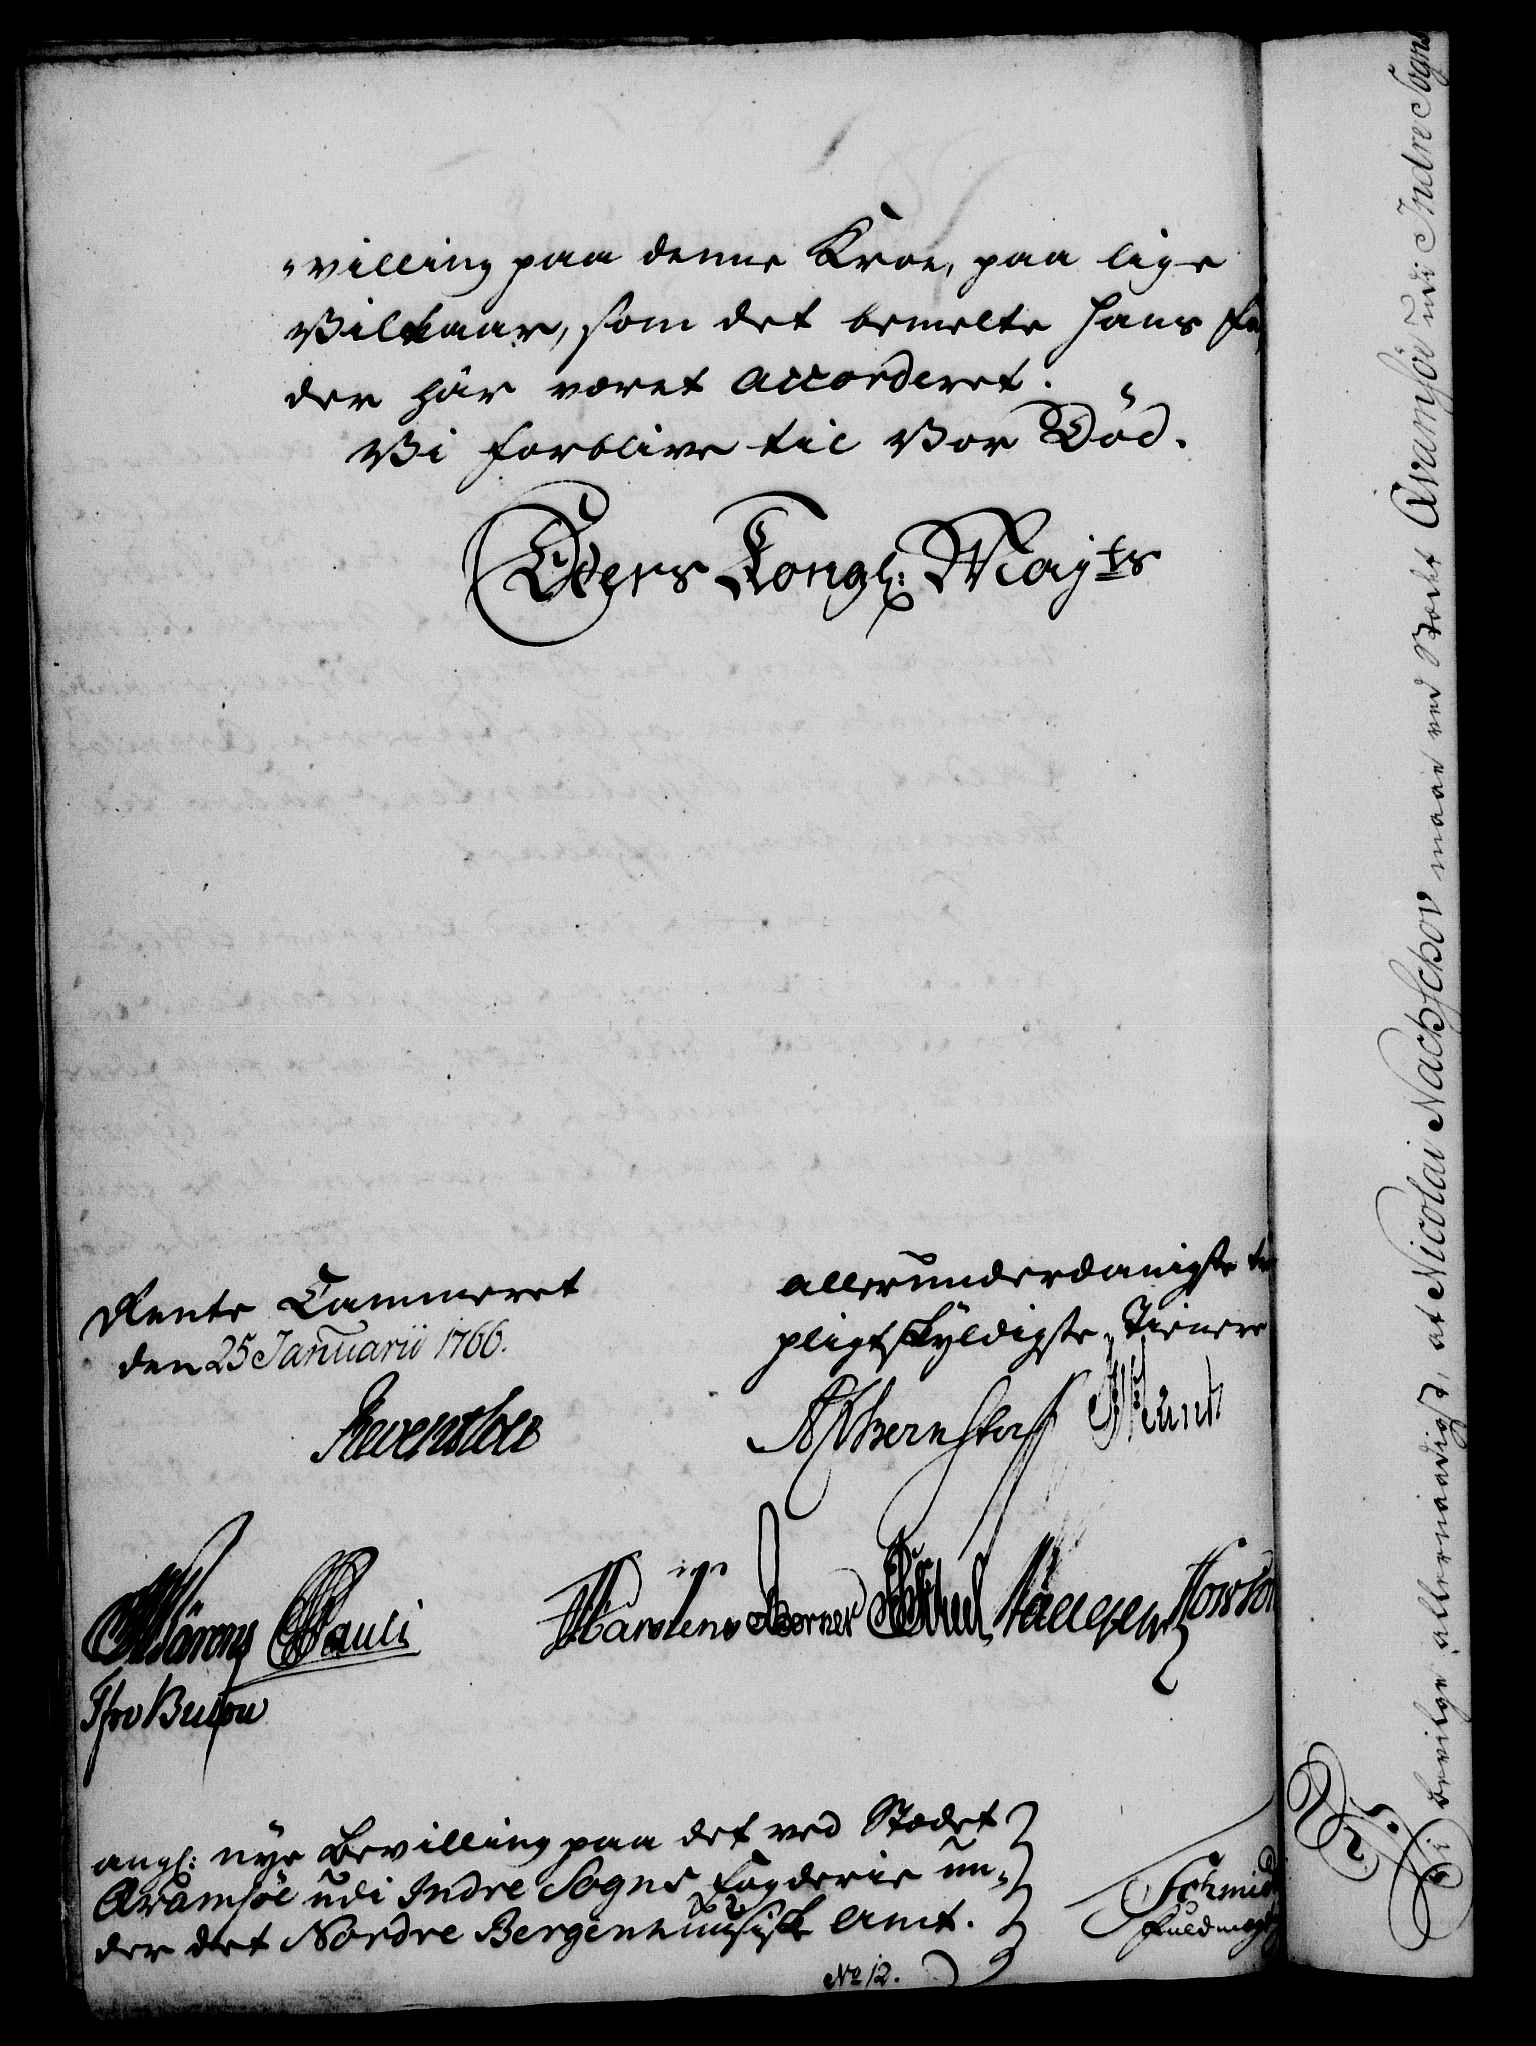 „villing paa denne Kroe, paa lige
Vilkaar, som det bemelte hans Fa,
der hår været accorderet.
Vi forblive til Vor Död.
Eders Kongl: Mayts
Rente Cammeret
den 25 Januarii 1766.
allerunderdanigste tro
pligtskyldigste Tienere
Reventlow
AGBernstorff
Pauli
Karstens
Berner
Tfro Bülow
angl: nye Bevilling paa det ved Stædet
Aramsöe udi Indre Sogns Fogderie un„
der det Nordre Bergenhuusiske Amt.
No 12.
Schmid
Fuldmegt
Vi bevilge allernaadigst, at Nicolai Nachschov maae ved Stædet Aramsöe udi Indre Sogns